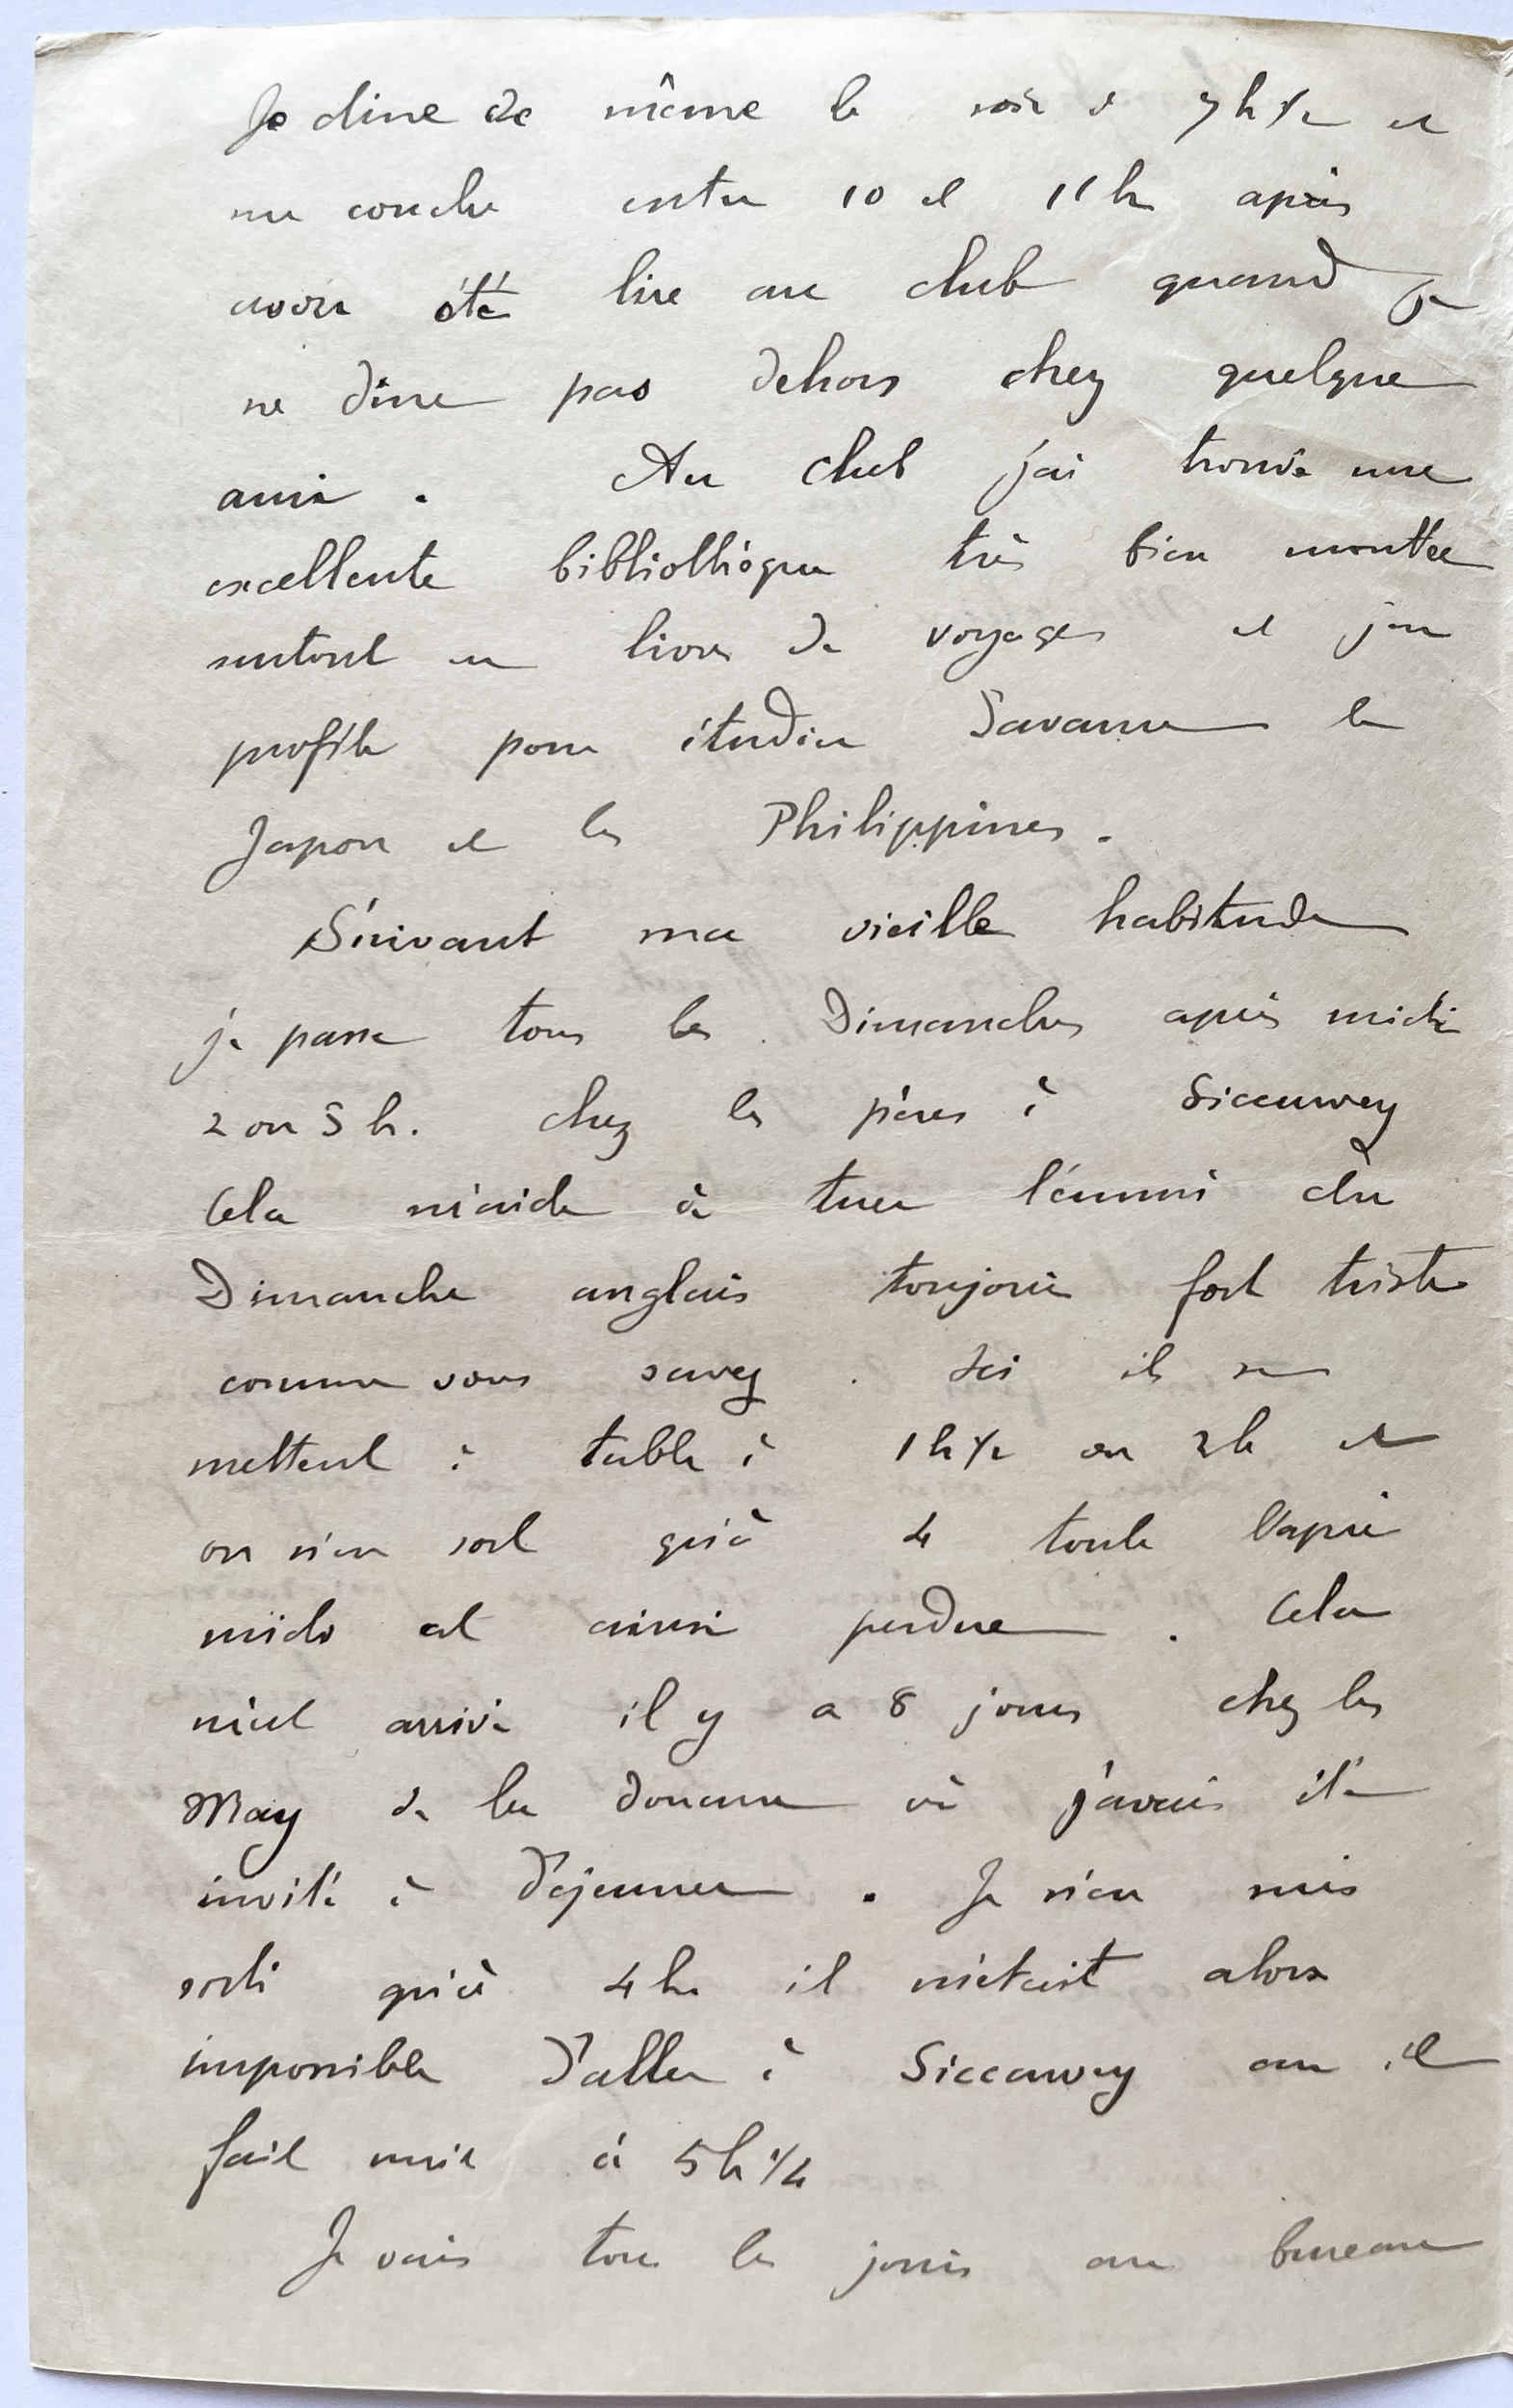 Je dine de même le soir à 7h ½ et
me couche entre 10 et 11h après
avoir été lire au club quand je
ne dine pas dehors chez quelque
ami. Au club j'ai trouvé une
excellente bibliothèque très bien montée
surtout en livres de voyages et j'en
profite pour étudier Java le
Japon et les Philippines.
Suivant ma vieille habitude
je passe tous les Dimanches après midi
2 ou 3 h. chez les pères à Siccawey
Cela m'aide à tuer l'ennui du
Dimanche anglais toujours fort triste
comme vous savez. Ici ils se
mettent à table à 1h ½ ou 2h et
on n'en sort qu'à 4 toute l'après
midi est ainsi perdue. Cela
m'est arrivé il y a 8 jours chez les
May de la Douane où j'avais été
invité à déjeuner. Je n'en suis
sorti qu'à 4h il m'était alors
impossible d'aller à Siccawey car il
fait nuit à 5h ¼
Je vais tous les jours au bureau